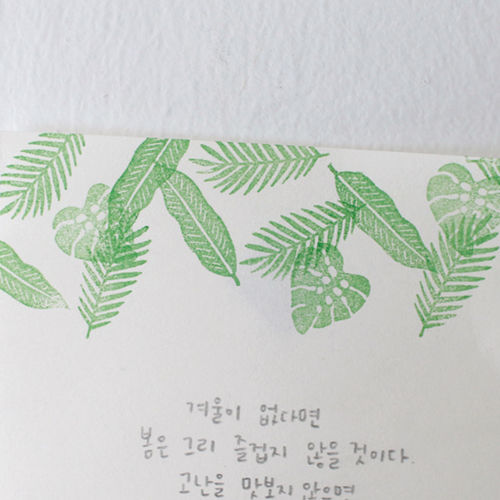 겨울이 없다면
봄은 그리 즐겁지 않을 것이다.
고난을 맛보지 않으며